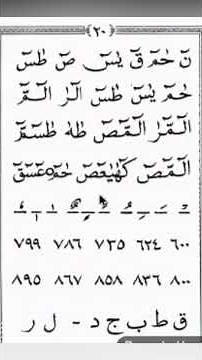 ﴿٢٠﴾
نٓ حٰمٓ قٓ يٰسٓ صٓ طٰسٓ
حٰمٓ يٰسٓ طٰسٓ الٓرٰ الٓمّٓ
الٓمّٓرٰ الٓمّٓصٓ طٰهٰ طٰسٓمّٓ
الٓمّٓصٓ كٓهٰيٰعٓصٓ حٰمٓ عٓسٓقٓ
٦٠٠ ٦٢٤ ٧٣٥ ٧٨٦ ٧٩٩
٨٠٠ ٨٣٦ ٨٥٨ ٨٦٧ ٨٩٥
ق ط ب ج د - ل ر